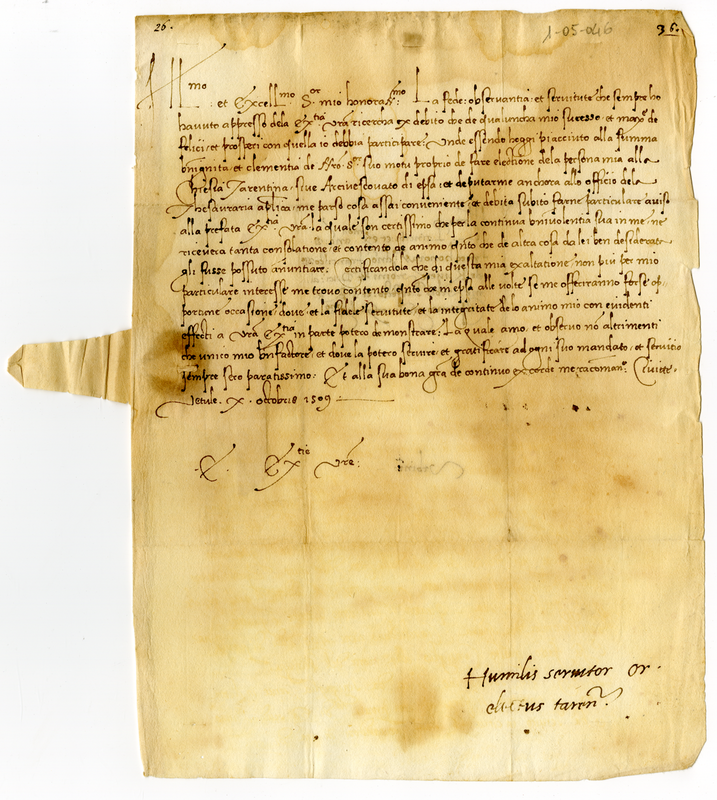 26.
1-05-046
36.
Ill.mo et Excell.mo S.or mio honoras.mo La fede: observantia: et servitute che sempre ho
havuto appresso dela Ex.tia vra ricercha ex debito che de qualuncha mio sucesso et maxe de
felici: et prosperi con quella io debbia participare: Unde essendo heggi piacciuto alla summa
bnignita et clementia de Nro S.re suo motu proprio de fare electione dela persona mia alla
Chiesia Tarentina: sive Arcivescovato di epsa: et deputarme anchora allo officio dela
Thesauraria aplica: me parso cosa assai conveniente et debita subito farne particulare aviso
alla prefata Ex.tia vra: la quale son certissimo che per la continua bnivolentia sua in me: ne
ricevera tanta consolatione et contento de animo qnto che de altra cosa da lei ben desiderata
gli fusse possuto anuntiare: Certificandola che di questa mia exaltatione non piu per mio
particulare interesse me trovo contento qnto che in epsa alle volte se me offeriranno forse op-
portune occasione: dove et la fidele servitute: et la integritate delo animo mio con evidenti
effecti a vra Ex.tia in parte potero demonstrare: La quale amo: et observo no altrimenti
che unico mio bnfactore: et dove la potero servire: et gratificare ad ogni suo mandato et servitio
sempre sero paratissimo: Et alla sua bona gra de continuo ex corde me racoman: Civite-
Vetule. X. octobris 1509
E. Ex.tie vre:
Humilis servitor Or.
electus taren.